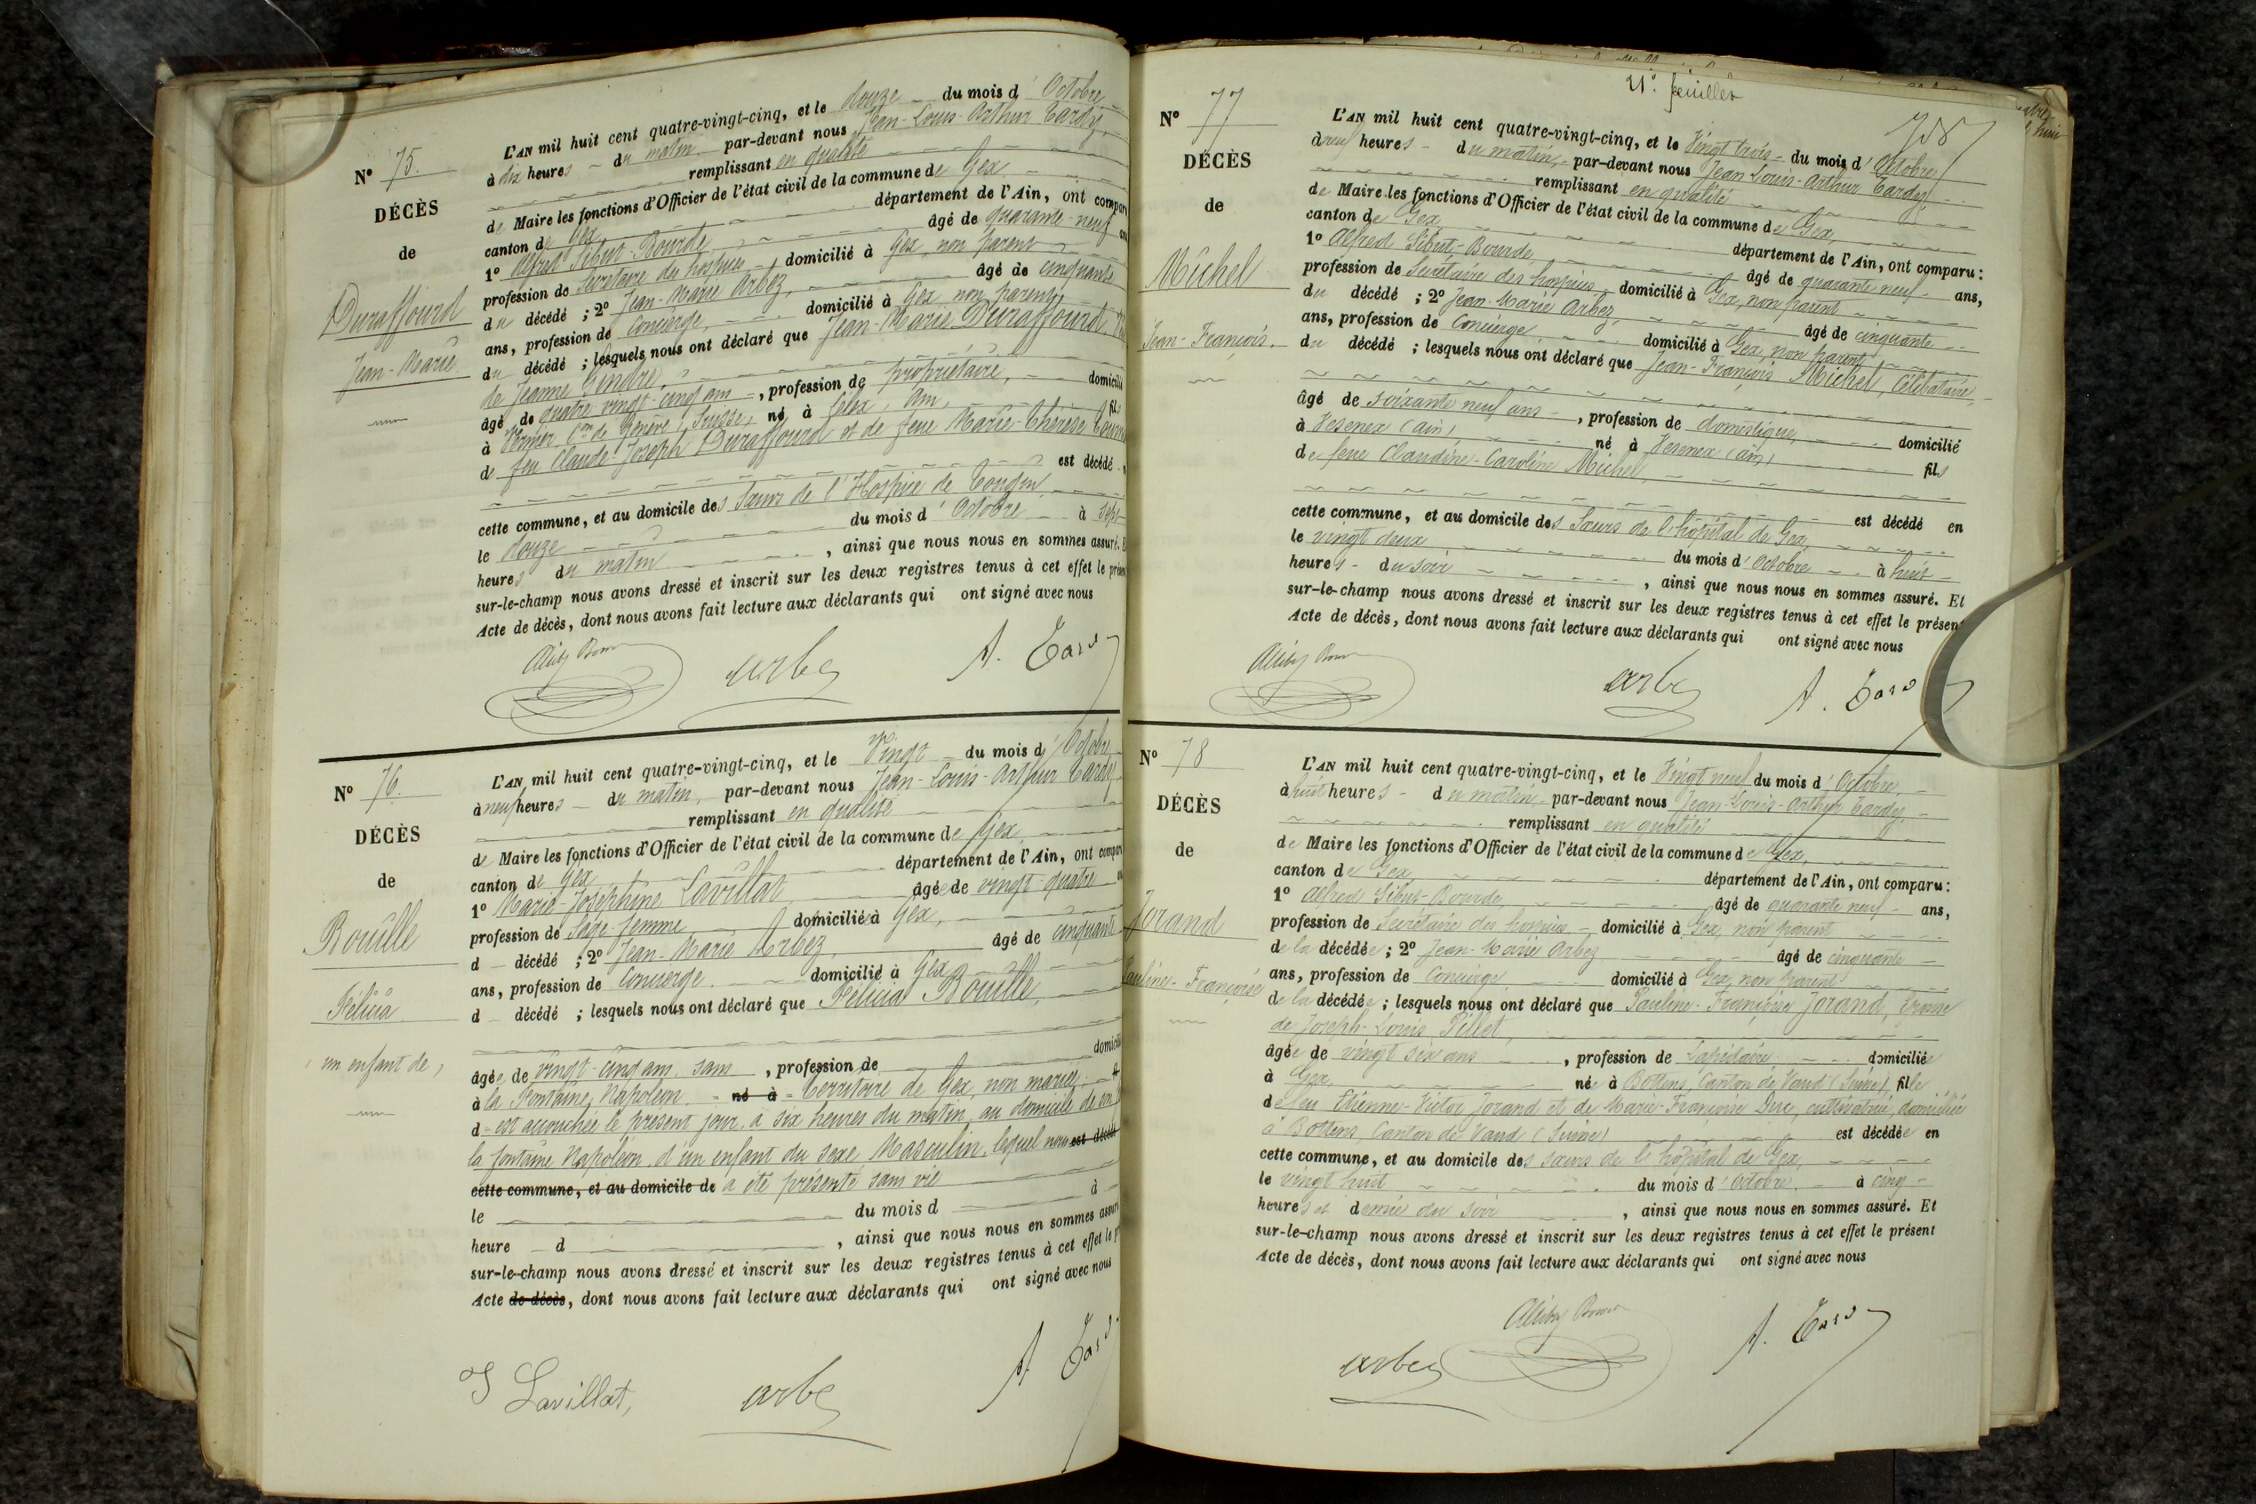 N° 75.
DÉCÈS
de
Duraffourd
Jean-Marie
L'AN mil huit cent quatre-vingt-cinq, et le douze du mois d'Octobre
à dix heures du matin par-devant nous Jean-Louis-Arthur Tardy,
remplissant en qualité
de Maire les fonctions d'Officier de l'état civil de la commune de Gex
canton de Gex département de l'Ain, ont compar
1° Alfred Sibut-Bourde âgé de quarante-neuf an
profession de Secrétaire des hospices, domicilié à Gex, non parent
du décédé ; 2° Jean-Marie Arbez, âgé de cinquante
ans, profession de Concierge, domicilié à Gex, non parent
du décédé ; lesquels nous ont déclaré que Jean-Marie Duraffourd
de Jeanne Gendre,
âgé de quatre vingt-cinq ans, profession de propriétaire, domicilié
à Vernier Con de Genève (Suisse), né à Lélex, Ain, fils
de feu Claude-Joseph Duraffourd et de feue Marie-Thérèse
est décédé
cette commune, et au domicile des Sœurs de l'Hospice de Tougin
le douze du mois d'Octobre à sept
heures du matin, ainsi que nous nous en sommes assuré. E
sur-le-champ nous avons dressé et inscrit sur les deux registres tenus à cet effet le présen
Acte de décès, dont nous avons fait lecture aux déclarants qui ont signé avec nous
Arbez A. Tardy
N° 76.
DÉCÈS
de
Bouille
Félicia
(un enfant de)
L'AN mil huit cent quatre-vingt-cinq, et le Vingt du mois d'Octobre
à neuf heures du matin, par-devant nous Jean-Louis-Arthur Tardy
remplissant en qualité
de Maire les fonctions d'Officier de l'état civil de la commune de Gex
canton de Gex département de l'Ain, ont compar
1° Marie-Joséphine Lavillat âgée de vingt-quatre
profession de Sage-femme domiciliée à Gex,
d décédé ; 2° Jean-Marie Arbez, âgé de cinquante
ans, profession de Concierge domicilié à Gex
d décédé ; lesquels nous ont déclaré que Félicia Bouille,
âgée de vingt-cinq ans, sans, profession de domicili
à la Fontaine Napoléon né à Territoire de Gex, non mariée,
d est accouchée le présent jour, à six heures du matin, au domicile de son
la fontaine Napoléon, d'un enfant du sexe Masculin, lequel nous est décédé
cette commune, et au domicile de a été présenté sans vie
le du mois d à
heure d, ainsi que nous nous en sommes assuré
sur-le-champ nous avons dressé et inscrit sur les deux registres tenus à cet effet le p
Acte de décès, dont nous avons fait lecture aux déclarants qui ont signé avec nous
J Lavillat, Arbez A. Tardy
21e feuillet
N° 77
DÉCÈS
de
Michel
Jean-François.
L'AN mil huit cent quatre-vingt-cinq, et le Vingt trois du mois d'Octobre
à neuf heures du matin, par-devant nous Jean-Louis-Arthur Tardy,
remplissant en qualité
de Maire les fonctions d'Officier de l'état civil de la commune de Gex,
canton de Gex, département de l'Ain, ont comparu :
1° Alfred Sibut-Bourde âgé de quarante neuf ans,
profession de Secrétaire des hospices, domicilié à Gex, non parent
du décédé ; 2° Jean-Marie Arbez, âgé de cinquante
ans, profession de Concierge, domicilié à Gex, non parent
du décédé ; lesquels nous ont déclaré que Jean-François Michel, célibataire,
âgé de soixante neuf ans, profession de domestique, domicilié
à Vesenex (Ain) né à Vesenex (Ain) fils
de feue Claudine-Caroline Michel,
est décédé en
cette commune, et au domicile des Sœurs de l'hôpital de Gex,
le vingt deux du mois d'Octobre à huit
heures du soir, ainsi que nous nous en sommes assuré. Et
sur-le-champ nous avons dressé et inscrit sur les deux registres tenus à cet effet le présent
Acte de décès, dont nous avons fait lecture aux déclarants qui ont signé avec nous
Arbez A. Tardy
N° 78
DÉCÈS
de
Jorand
Pauline-Françoise
L'AN mil huit cent quatre-vingt-cinq, et le Vingt neuf du mois d'Octobre,
à huit heures du matin par-devant nous Jean-Louis-Arthur Tardy,
remplissant en qualité
de Maire les fonctions d'Officier de l'état civil de la commune de Gex,
canton de Gex, département de l'Ain, ont comparu :
1° Alfred Sibut-Bourde, âgé de quarante neuf ans,
profession de Secrétaire des hospices, domicilié à Gex, non parent
de la décédée ; 2° Jean-Marie Arbez âgé de cinquante
ans, profession de Concierge, domicilié à Gex, non parent
de la décédée ; lesquels nous ont déclaré que Pauline-Françoise Jorand, épouse
de Joseph-Louis Pillet,
âgée de vingt six ans, profession de Lapidaire domiciliée
à Gex, née à Bottens, Canton de Vaud (Suisse), fille
de feu Etienne-Victor Jorand et de Marie-Françoise Duc, cultivatrice, domiciliée
à Bottens, Canton de Vaud (Suisse) est décédée en
cette commune, et au domicile des sœurs de l'hôpital de Gex,
le vingt huit du mois d'Octobre à cinq
heures et demie du soir, ainsi que nous nous en sommes assuré. Et
sur-le-champ nous avons dressé et inscrit sur les deux registres tenus à cet effet le présent
Acte de décès, dont nous avons fait lecture aux déclarants qui ont signé avec nous
Arbez A. Tardy